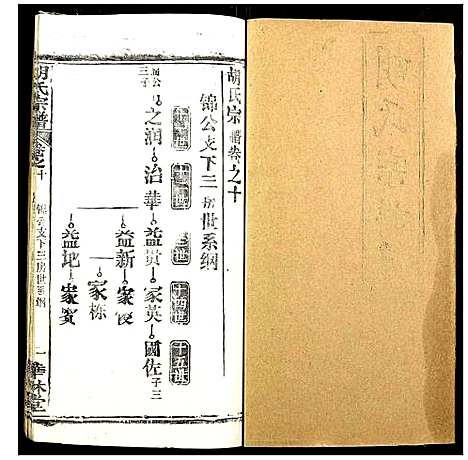 胡氏宗譜卷之十
錦公支下三房世系綱
十五世
公
三子
之潤 治華 益貫 家英 國佐 子三
益新 家俊
家栋
益地 家賓
胡氏宗譜 卷之十
錦公支下三房世系綱
一
華林堂
胡氏宗譜